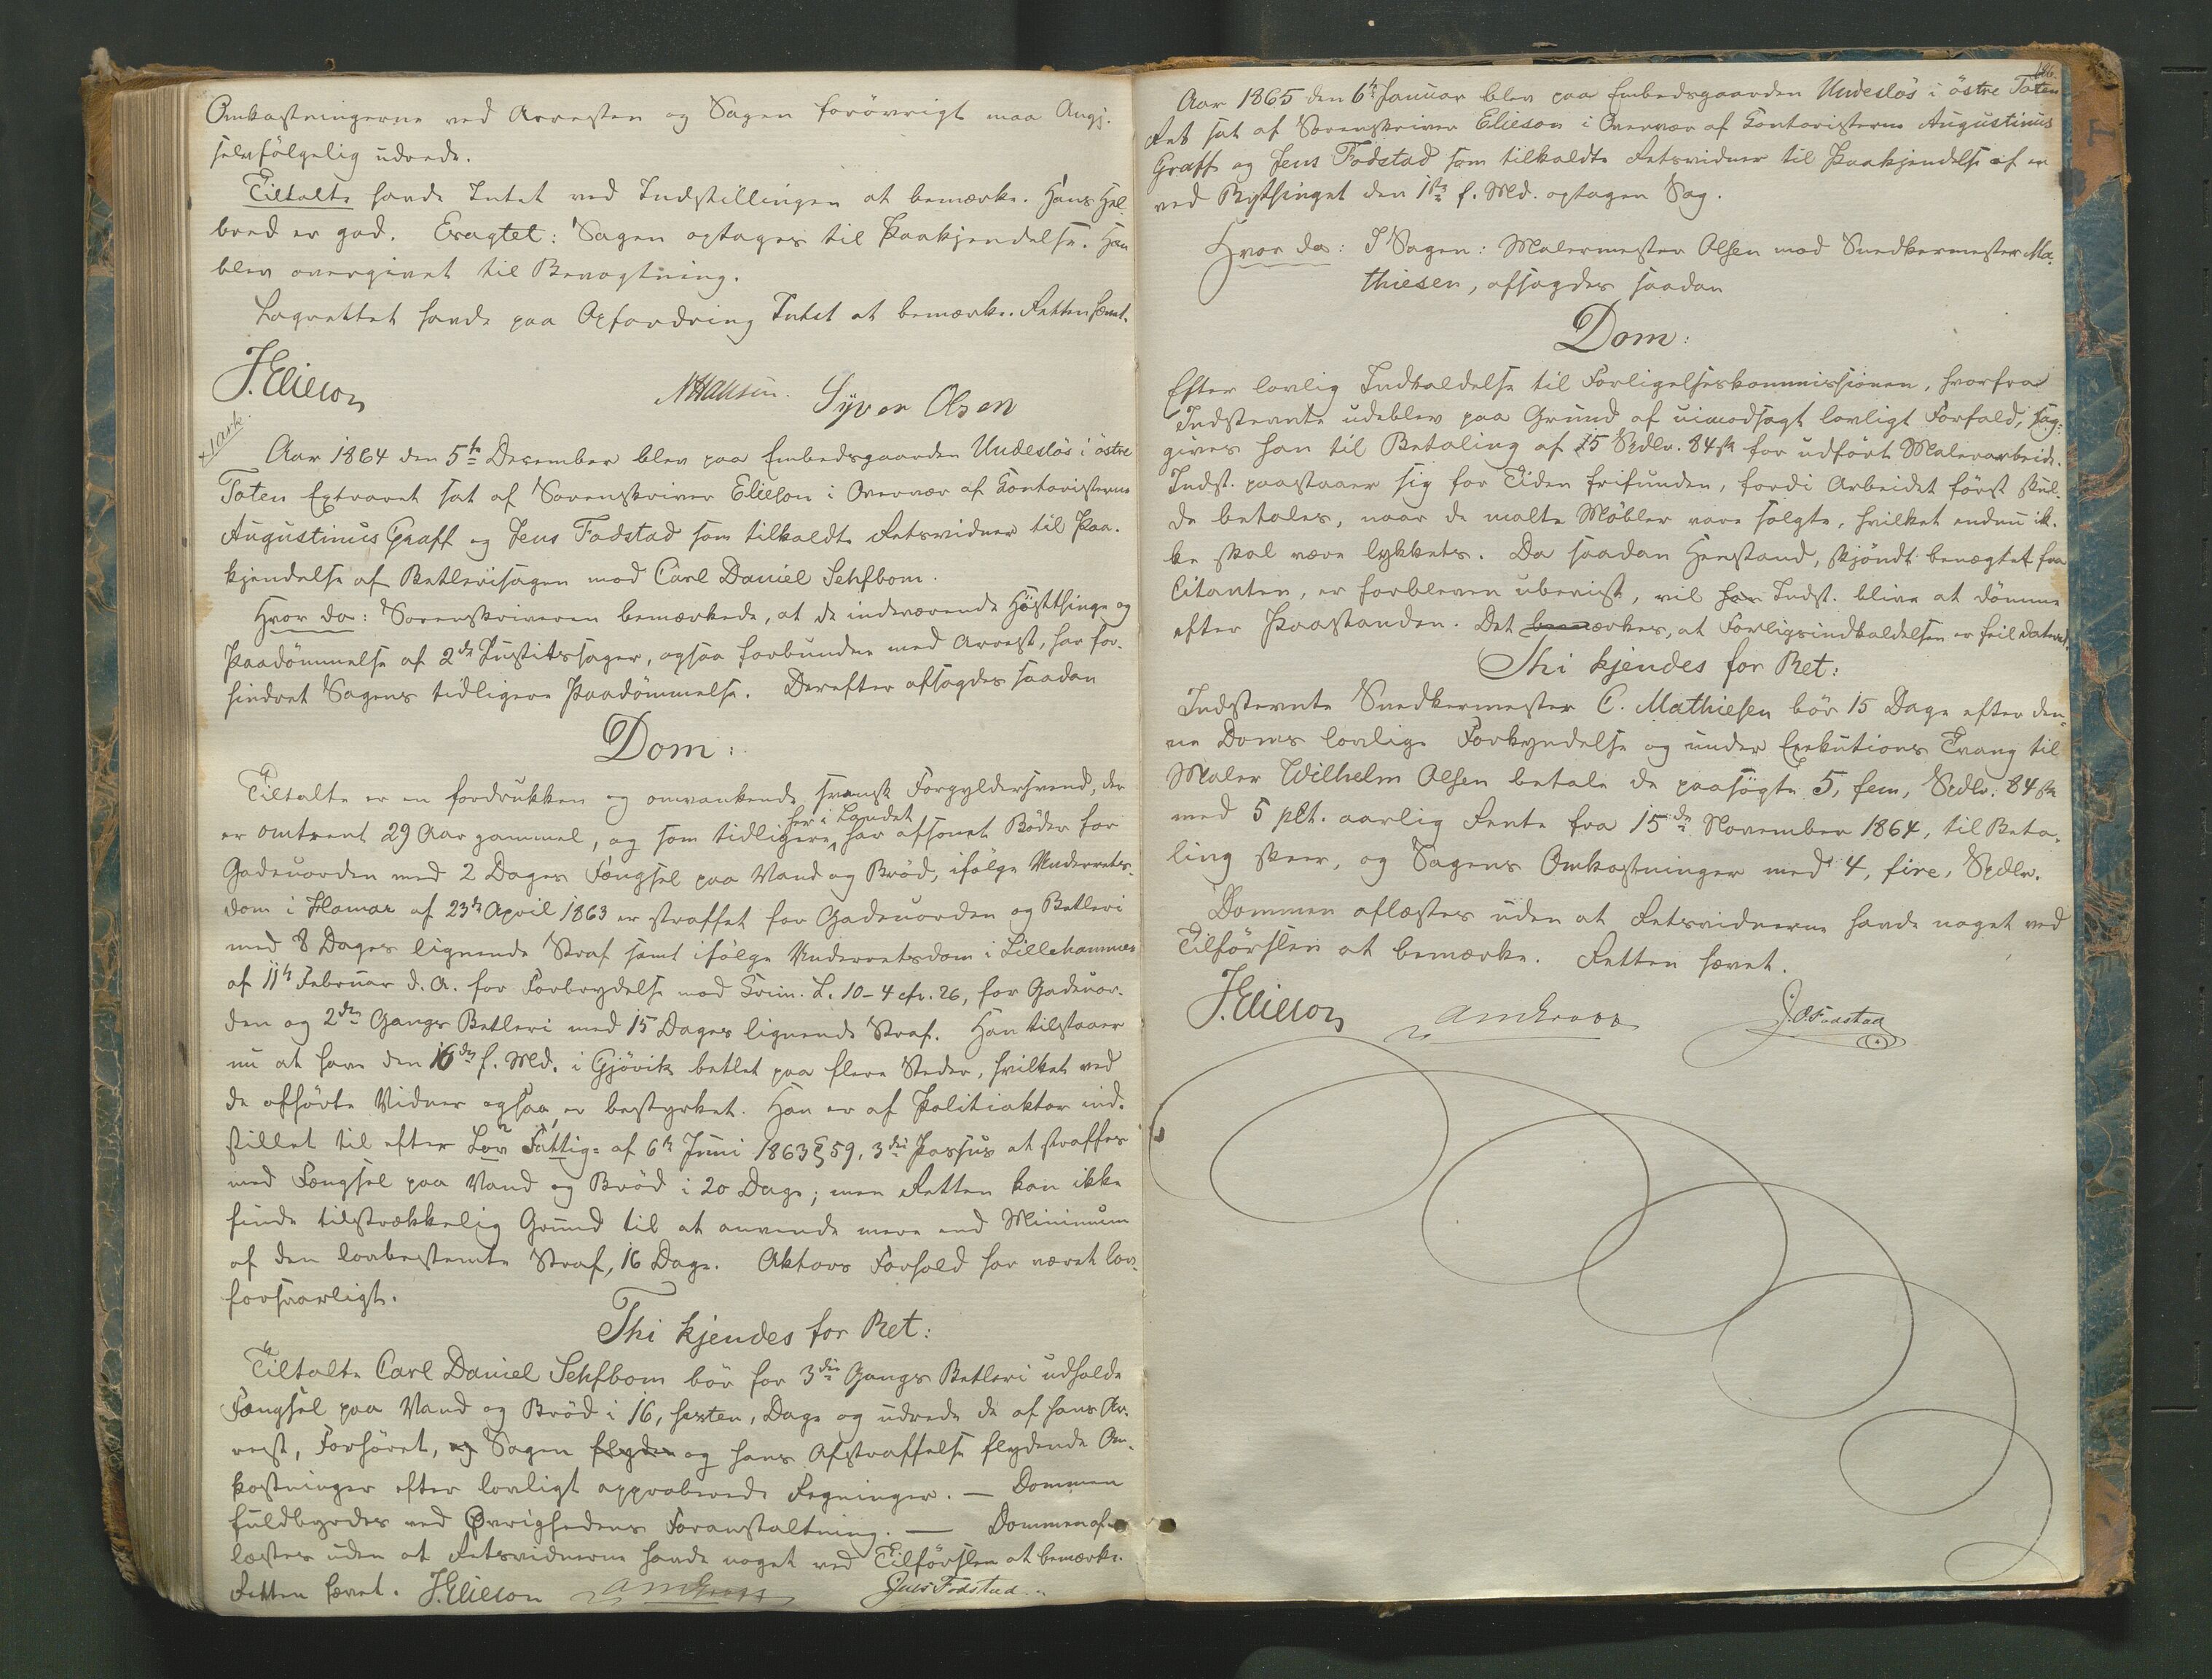 Omkostningerne ved Arresten og Sagen forövrigt maa Angj.
selvfölgelig udrede.
Tiltalte havde Intet ved Indstillingen at bemærke. Hans Hel-
bred er god. Eragtet: Sagen optages til Paakjendelse. Han
blev overgivet til Bevogtning.
Lagrettet havde paa Opfordring Intet at bemærke. Retten hævet.
J. Elieson
NHansen. Syver Olsen
Aar 1864 den 5te December blev paa Embedsgaarden Undeslös i östre
Toten Extraret sat af Sorenskriver Elieson i Overvær af Kontoristerne
Augustinus Graff og Jens Fodstad som tilkaldte Retsvidner til Paa-
kjendelse af Betlerisagen mod Carl Daniel Sehfbom.
Hvor da: Sorenskriveren bemærkede, at de indeværende Höstthinge og
Paadömmelse af 2de Justitssager, ogsaa forbundne med Arrest, har for-
hindret Sagens tidligere Paadömmelse. Derefter afsagdes saadan
Dom:
Tiltalte er en fordrukken og omvankende svensk Forgyldersvend, der
er omtrent 29 Aar gammel, og som tidligere her i Landet har afsonet Böder for
Gadeuorden med 2 Dages Fængsel paa Vand og Bröd, ifölge Underrets-
dom i Hamar af 23de April 1863 er straffet for Gadeuorden og Betleri
med 8 Dages lignende Straf samt ifölge Underretsdom i Lillehammer
af 11te Februar d. A. for Forbrydelse mod Krim. L. 10-4 cfr. 26, for Gadeuor-
den og 2den Gangs Betleri med 15 Dages lignende Straf. Han tilstaaer
nu at have den 16de f. Md. i Gjövik betlet paa flere Steder, hvilket ved
de afhörte Vidner ogsaa er bestyrket. Han er af Politiaktor ind-
stillet til efter Lov Fattig- af 6te Juni 1863 § 59, 3die Passus at straffes
med Fængsel paa Vand og Bröd i 20 Dage; men Retten kan ikke
finde tilstrækkelig Grund til at anvende mere end Minimum
af den lovbestemte Straf, 16 Dage. Aktors Forhold har været lov-
forsvarligt.
Thi kjendes for Ret:
Tiltalte Carl Daniel Sehfbom bör for 3die Gangs Betleri udholde
Fængsel paa Vand og Bröd i 16, sexten, Dage og udrede de af hans Ar-
rest, Forhöret, og Sagen flyden og hans Afstraffelse flydende Om-
kostninger efter lovligt approberede Regninger. — Dommen
fuldbyrdes ved Øvrighedens Foranstaltning. — Dommen af-
læstes uden at Retsvidnerne havde noget ved Tilförslen at bemærke.
Retten hævet. J. Elieson AMGraff Jens Fodstad
186.
Aar 1865 den 6te Januar blev paa Embedsgaarden Undeslös i östre Toten
Ret sat af Sorenskriver Elieson i Overvær af Kontoristerne Augustinus
Graff og Jens Fodstad som tilkaldte Retsvidner til Paakjendelse af en
ved Bythinget den 1ste f. Md. optagen Sag.
Hvor da: I Sagen: Malermester Olsen mod Snedkermester Ma-
thiesen, afsagdes saadan
Dom:
Efter lovlig Indkaldelse til Forligelseskommissionen, hvorfra
Indstevnte udeblev paa Grund af uimodsagt lovligt Forfald, sag-
gives han til Betaling af 15 Spdlr. 84 sk for udfört Malerarbeide.
Indst. paastaaer sig for Tiden frifunden, fordi Arbeidet först skul-
de betales, naar de malte Møbler vare solgte, hvilket endnu ik-
ke skal være lykkets. Da saadan Henstand, skjöndt benægtet fra
Citanten, er forbleven ubevist, vil han Indst. blive at dömme
efter Paastanden. Det bemærkes, at Forligsindkaldelsen er feil dateret.
Thi kjendes for Ret:
Indstevnte Snedkermester C. Mathiesen bör 15 Dage efter den-
ne Doms lovlige Forkyndelse og under Exekutions Tvang til
Maler Wilhelm Olsen betale de paasögte 5, fem, Spdlr. 84 sk
med 5 pCt. aarlig Rente fra 15de November 1864, til Beta-
ling skeer, og Sagens Omkostninger med 4, fire, Spdlr.
Dommen aflæstes uden at Retsvidnerne havde noget ved
Tilförslen at bemærke. Retten hævet.
J. Elieson AMGraff J. P. Fodstad